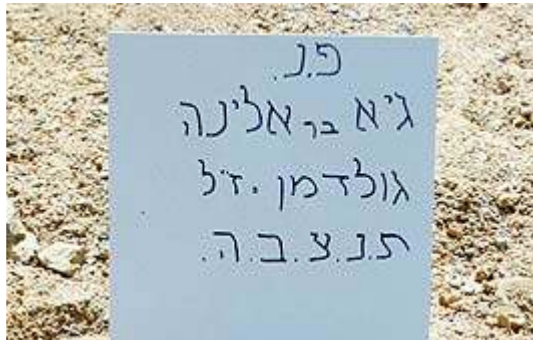 פ.נ.
גיא בר אלינה
גולדמן ז"ל
ת.נ.צ.ב.ה.